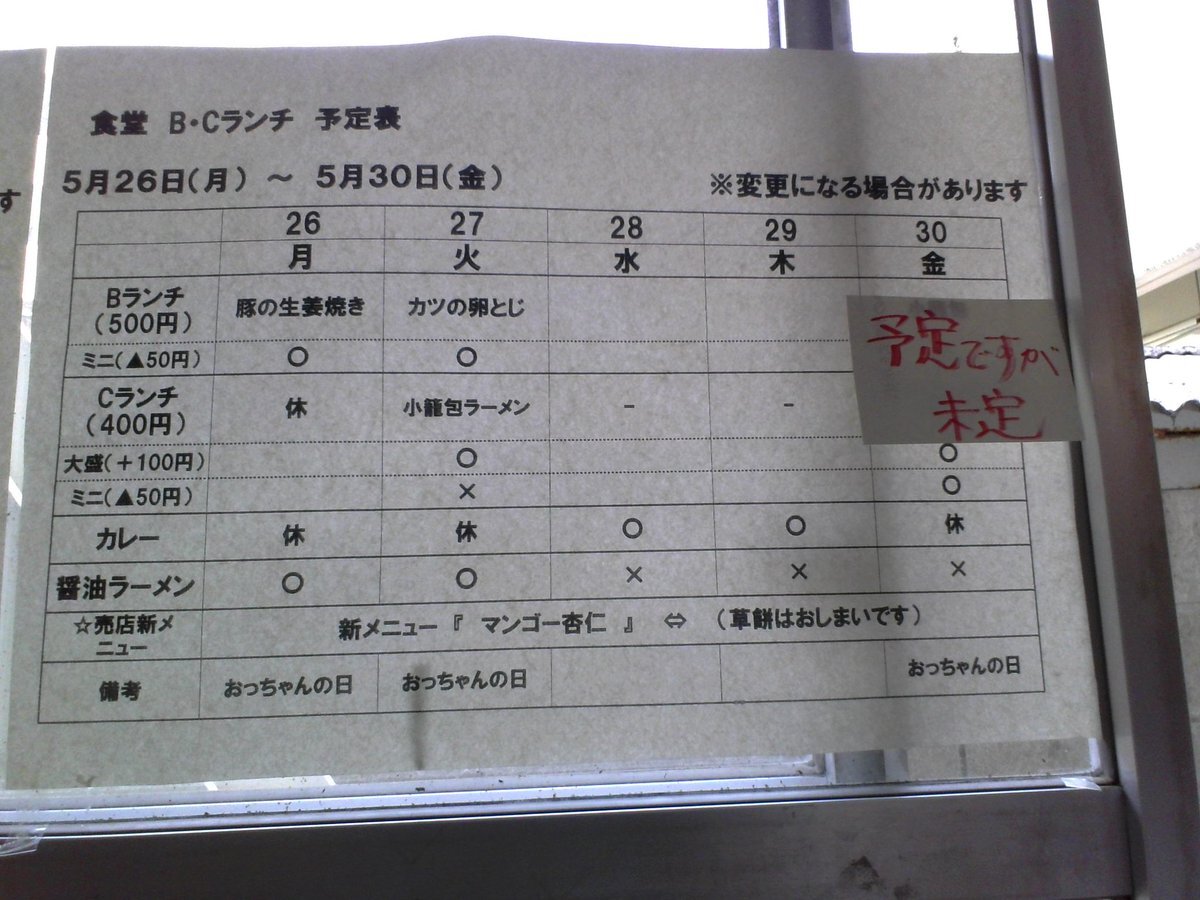 す
食堂 B・Cランチ 予定表
5月26日(月) ～ 5月30日(金)
※変更になる場合があります
26 27 28 29 30
月 火 水 木 金
Bランチ
(500円) 豚の生姜焼き カツの卵とじ
ミニ(▲50円) ○ ○
予定ですが
未定
Cランチ
(400円) 休 小籠包ラーメン - -
大盛(＋100円) ○ ○
ミニ(▲50円) × ○
カレー 休 休 ○ ○ 休
醤油ラーメン ○ ○ × × ×
☆売店新メ
ニュー 新メニュー『 マンゴー杏仁 』 ⇔ (草餅はおしまいです)
備考 おっちゃんの日 おっちゃんの日 おっちゃんの日